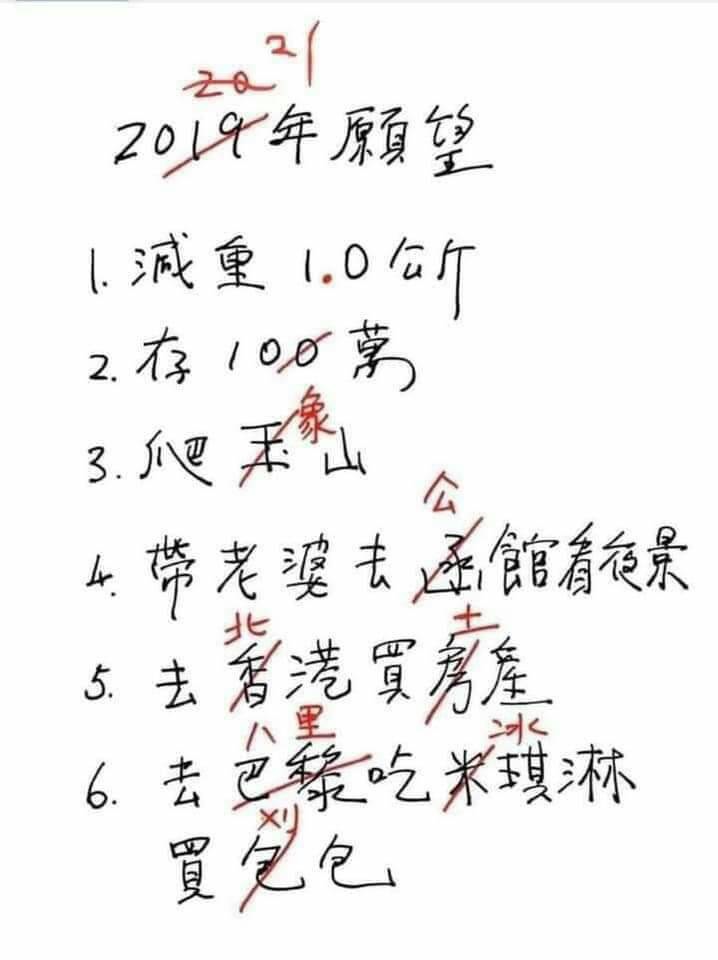 21
20
2019年願望
1. 減重 1.0公斤
2. 存 100 萬
象
3. 爬 玉山
公
4. 帶老婆去函館看夜景
北 土
5. 去香港買房產
八里 冰
6. 去巴黎吃米琪淋
刈
買包包